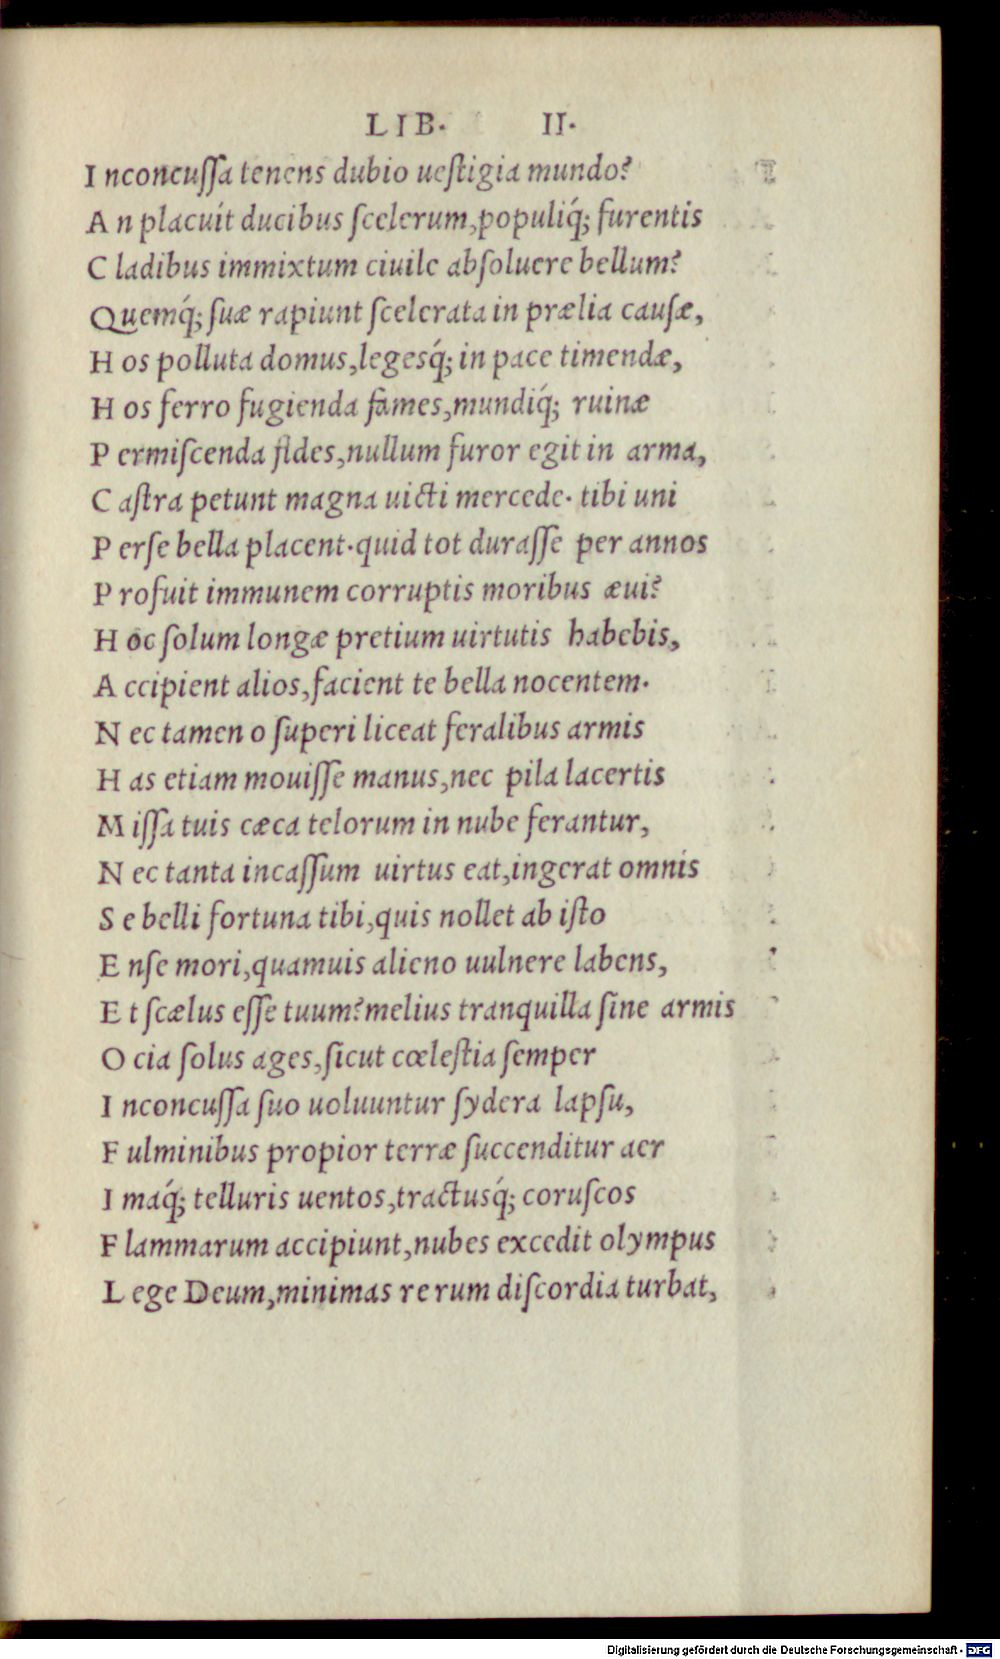 LIB. II.
I nconcussa tenens dubio uestigia mundo?
A n placuit ducibus scelerum,populiq́; furentis
C ladibus immixtum ciuile absoluere bellum?
Quemq́; suæ rapiunt scelerata in prælia causæ,
H os polluta domus,legesq́; in pace timendæ,
H os ferro fugienda fames,mundiq́; ruinæ
P ermiscenda fides,nullum furor egit in arma,
C astra petunt magna uicti mercede. tibi uni
P erse bella placent.quid tot durasse per annos
P rofuit immunem corruptis moribus æui?
H oc solum longæ pretium uirtutis habebis,
A ccipient alios,facient te bella nocentem.
N ec tamen o superi liceat feralibus armis
H as etiam mouisse manus,nec pila lacertis
M issa tuis cæca telorum in nube ferantur,
N ec tanta incassum uirtus eat,ingerat omnis
S e belli fortuna tibi,quis nollet ab isto
E nse mori,quamuis alieno uulnere labens,
E t scælus esse tuum?melius tranquilla sine armis
O cia solus ages,sicut cœlestia semper
I nconcussa suo uoluuntur sydera lapsu,
F ulminibus propior terræ succenditur aer
I maq́; telluris uentos,tractusq́; coruscos
F lammarum accipiunt,nubes excedit olympus
L ege Deum,minimas rerum discordia turbat,
Digitalisierung gefördert durch die Deutsche Forschungsgemeinschaft - DFG